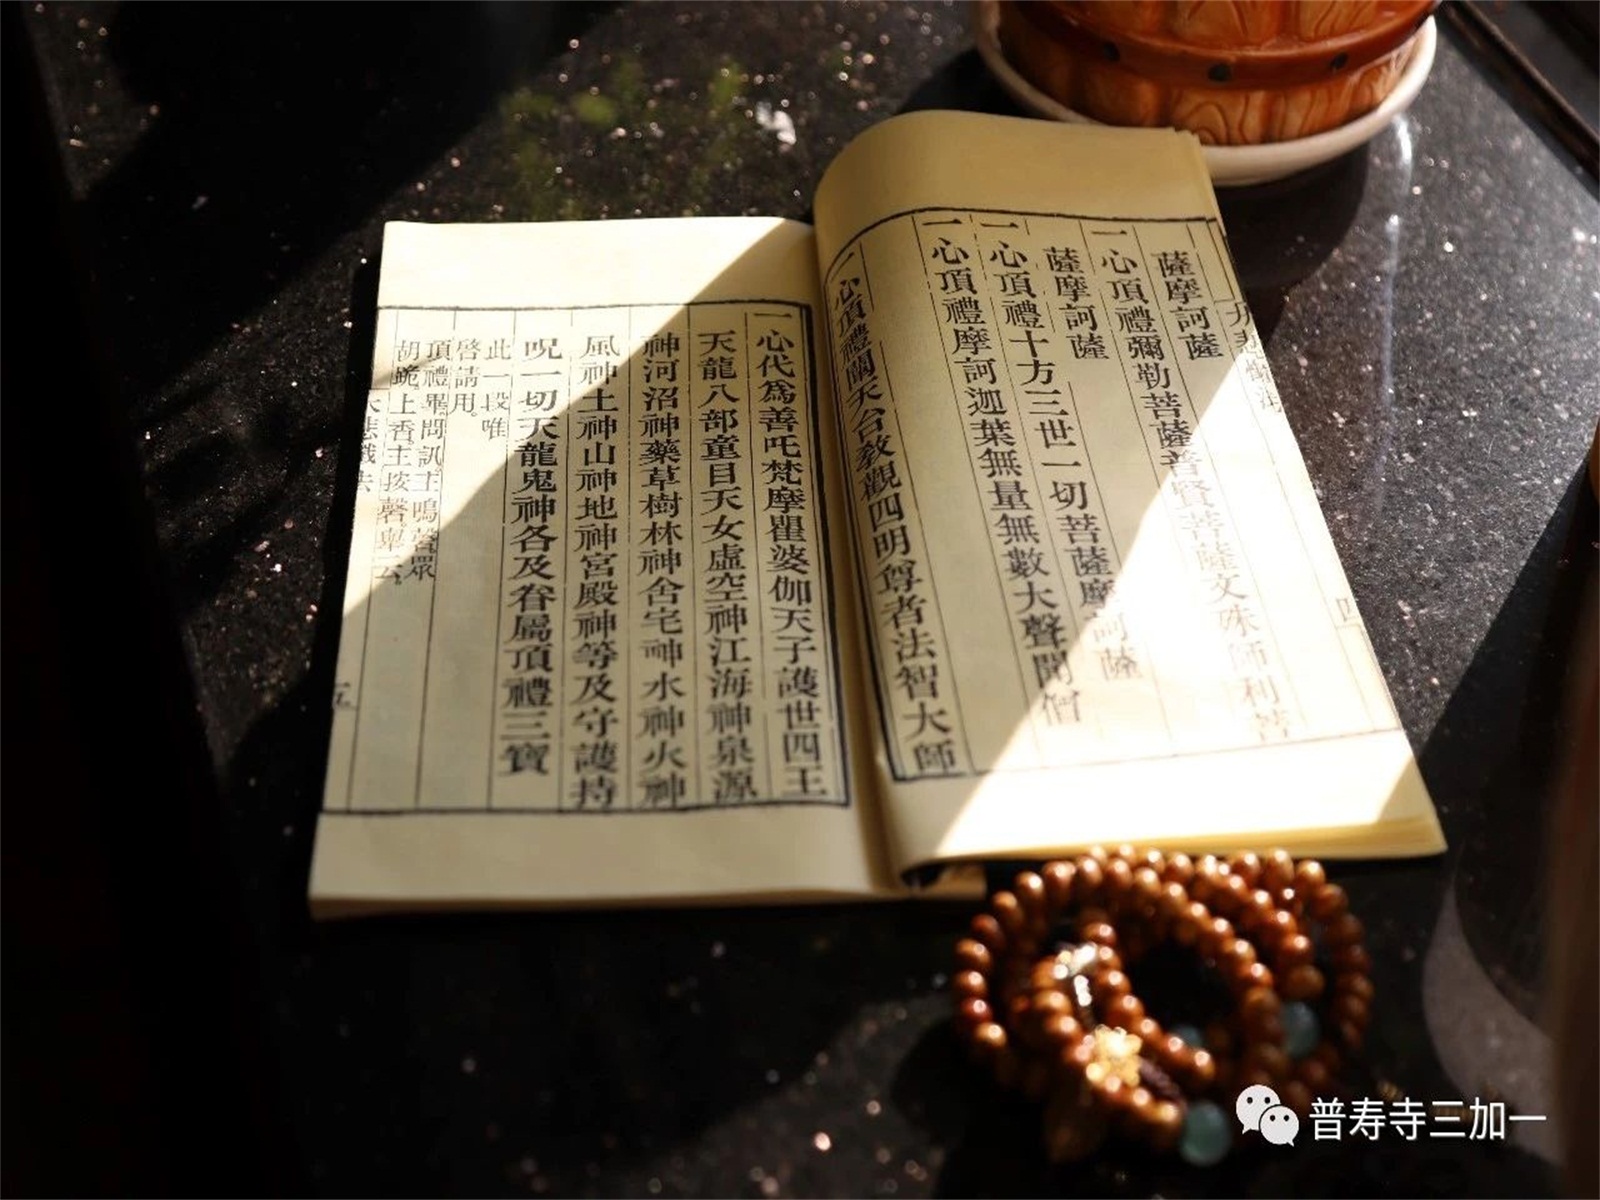 薩摩訶薩
一心頂禮彌勒菩薩普賢菩薩文殊師利菩
薩摩訶薩
一心頂禮十方三世一切菩薩摩訶薩
一心頂禮摩訶迦葉無量無數大聲聞僧
一心頂禮闡天台教觀四明尊者法智大師
大悲懺法
四
一心代爲善吒梵摩瞿婆伽天子護世四王
天龍八部童目天女虛空神江海神泉源
神河沼神藥草樹林神舍宅神水神火神
風神土神山神地神宮殿神等及守護持
呪一切天龍鬼神各及眷屬頂禮三寶
此一段唯
啓請用。
頂禮畢。問訊。主鳴磬。眾
胡跪。上香。主按磬舉云
大悲懺法
五
普寿寺三加一